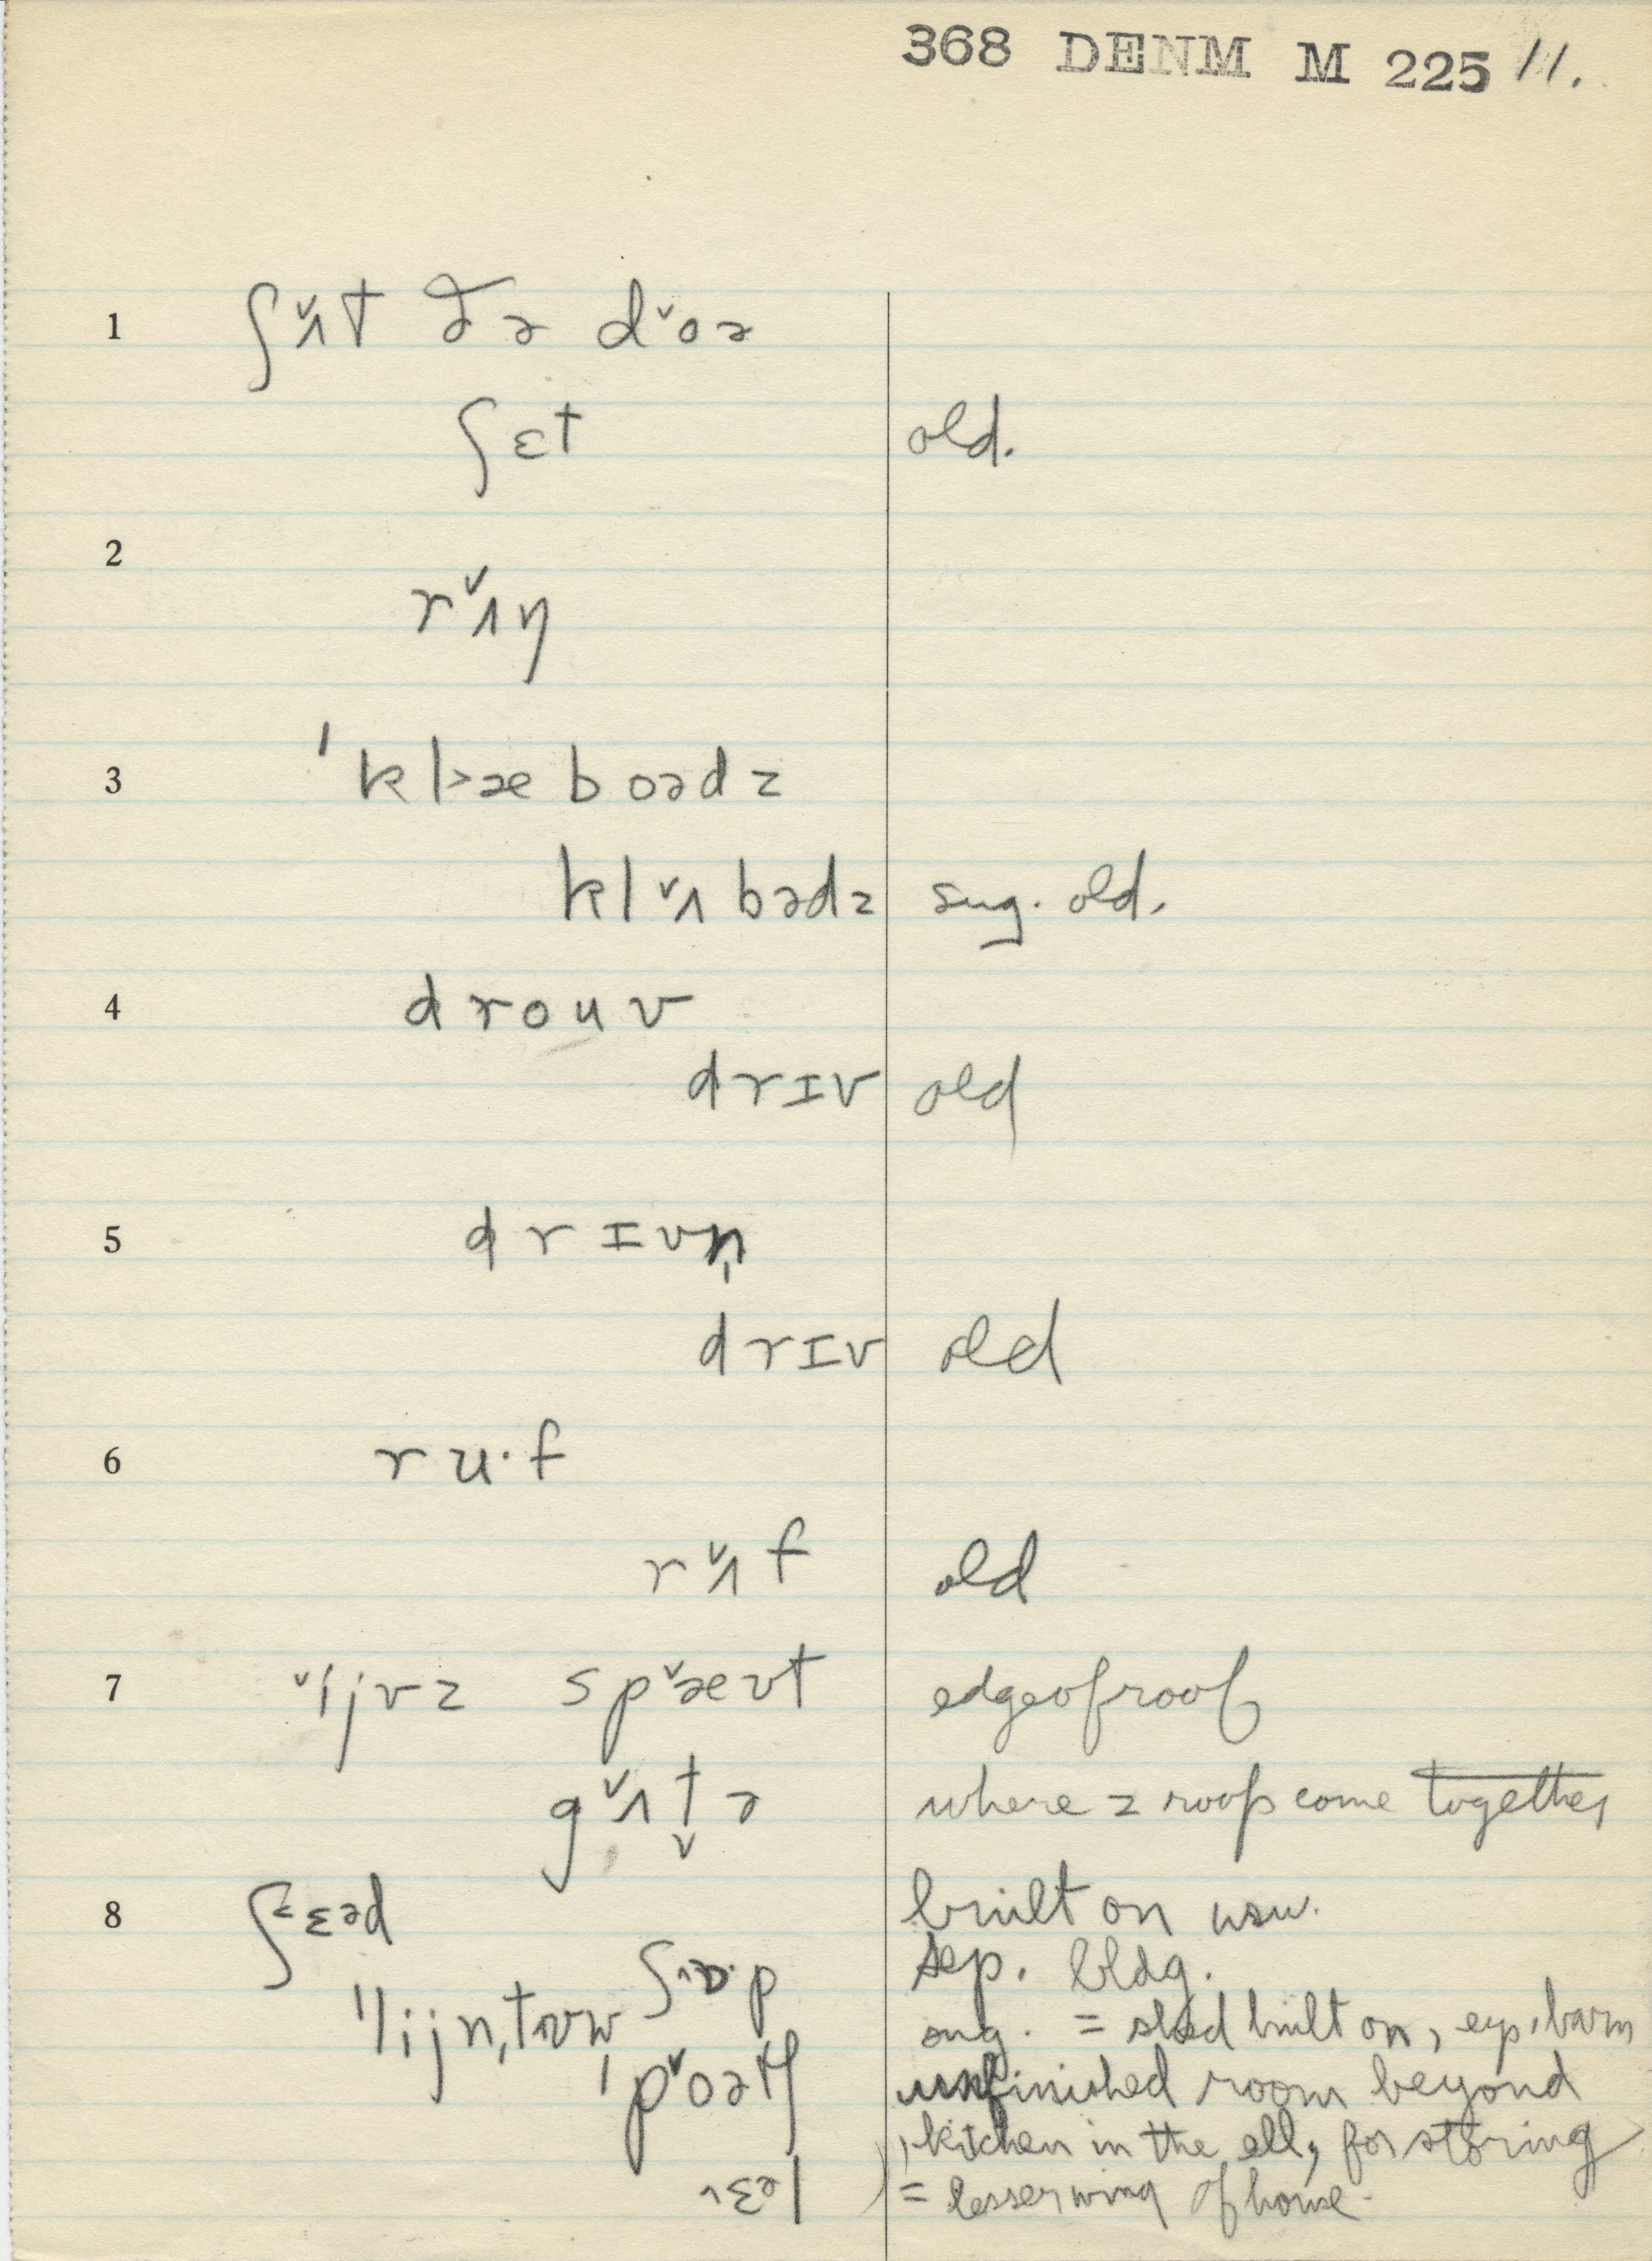 368 DENM M 225 11.
1 ʃʌ̌t ðə dˇoə
ʃɛt old.
2
rʌ̌ŋ
3 ˈkl>æboədz
klʌ̌bədz sug. old.
4 drouv
drɪv old
5 drɪvn̩
drɪv old
6 ru·f
rʌ̌f old
7 ˇijvz spˇæʊt edge of roof
gʌ̌t̬ə where 2 roofs come together
8 ʃɛɛəd built on usu.
ʃɒ·p sep. bldg.
ˈlijn,tʊw sug. = shed built on, esp. barn
ˌpˇoətʃ unfinished room beyond
kitchen in the ell, for storing
ɛəl = lesser wing of house.